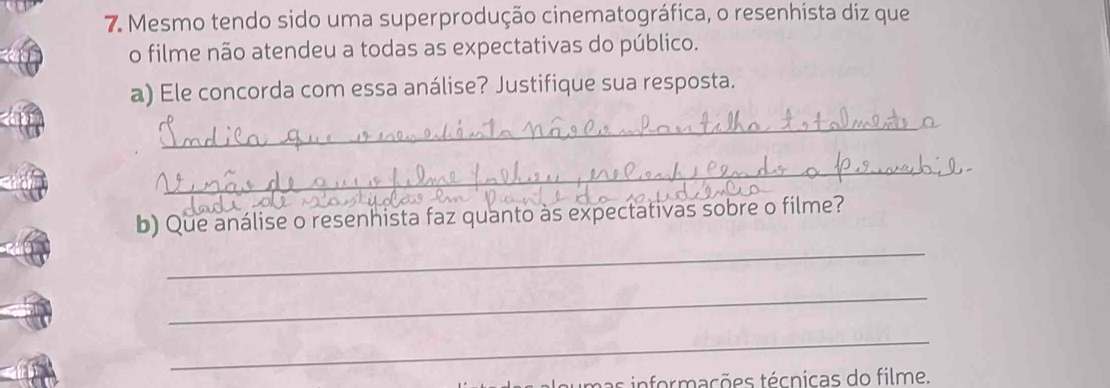 7. Mesmo tendo sido uma superprodução cinematográfica, o resenhista diz que
o filme não atendeu a todas as expectativas do público.
a) Ele concorda com essa análise? Justifique sua resposta.
Indica que o não compartilha totalmente a
de que o filme falhou, a
dade de em parte da audiência
b) Que análise o resenhista faz quanto às expectativas sobre o filme?
algumas informações técnicas do filme.